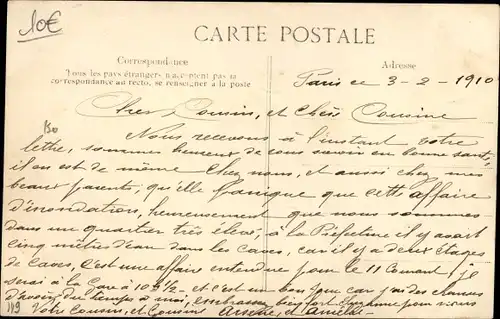 10€
CARTE POSTALE
Correspondance
Adresse
Tous les pays étrangers n'acceptent pas la
correspondance au recto, se renseigner à la poste
Paris ce 3-2-1910
Chers Cousin, et Chère Cousine
Nous recevons à l'instant votre
lettre, sommes heureux de vous savoir en bonne santé,
il en est de même chez nous, et aussi chez mes
beaux parents, qu'elle panique que cette affaire
d'inondation, heureusement que nous sommes
dans un quartier très élevé, à la Préfecture il y avait
cinq mètres d'eau dans les caves, car il y a deux étages
de caves, c'est une affaire entendue pour le 11 Courant, je
serai à la Gare à 10 h ½ - et c'est en bon que j'ai des chances
d'avoir du temps à moi, embrassez bien fort pour nous
Votre Cousin, et Cousine Arsène, et Amélie
119